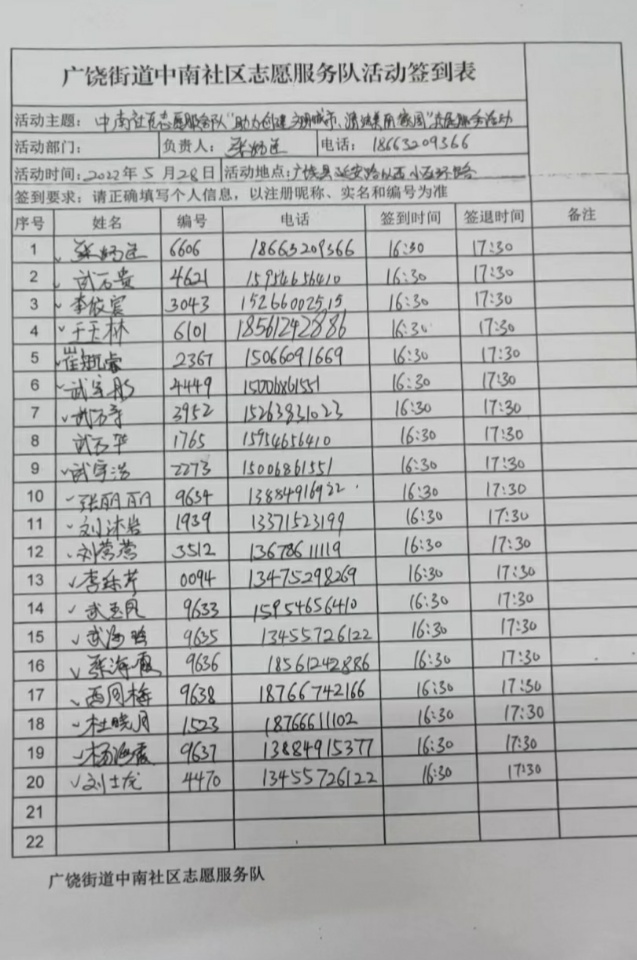 广饶街道中南社区志愿服务队活动签到表
活动主题：中南社区志愿服务队"助力创建文明城市、清洁美丽家园"志愿服务活动
活动部门： 负责人： 电话：18663209366
活动时间：2022年5月28日 活动地点：广饶县延安路以西
签到要求：请正确填写个人信息，以注册昵称、实名和编号为准
序号 姓名 编号 电话 签到时间 签退时间 备注
1 6606 18663209366 16:30 17:30
2 武石贵 4621 15954656410 16:30 17:30
3 李俊宸 3043 15266002515 16:30 17:30
4 于玉林 6101 18561242886 16:30 17:30
5 2367 15066091669 16:30 17:30
6 武宝彤 4449 15006861551 16:30 17:30
7 3952 15263831023 16:30 17:30
8 武石华 1765 15954656410 16:30 17:30
9 武宇浩 2273 15006861551 16:30 17:30
10 张丽丽 9634 13884916922 16:30 17:30
11 刘沐岩 1939 13371523199 16:30 17:30
12 刘莺莺 3512 13678611119 16:30 17:30
13 李乐芹 0094 13475298269 16:30 17:30
14 武玉凤 9633 15954656410 16:30 17:30
15 武海晗 9635 13455726122 16:30 17:30
16 张海霞 9636 18561242886 16:30 17:30
17 西月梅 9638 18766742166 16:30 17:30
18 杜晓月 1523 18766611102 16:30 17:30
19 杨海霞 9637 13884915377 16:30 17:30
20 刘士龙 4470 13455726122 16:30 17:30
21
22
广饶街道中南社区志愿服务队